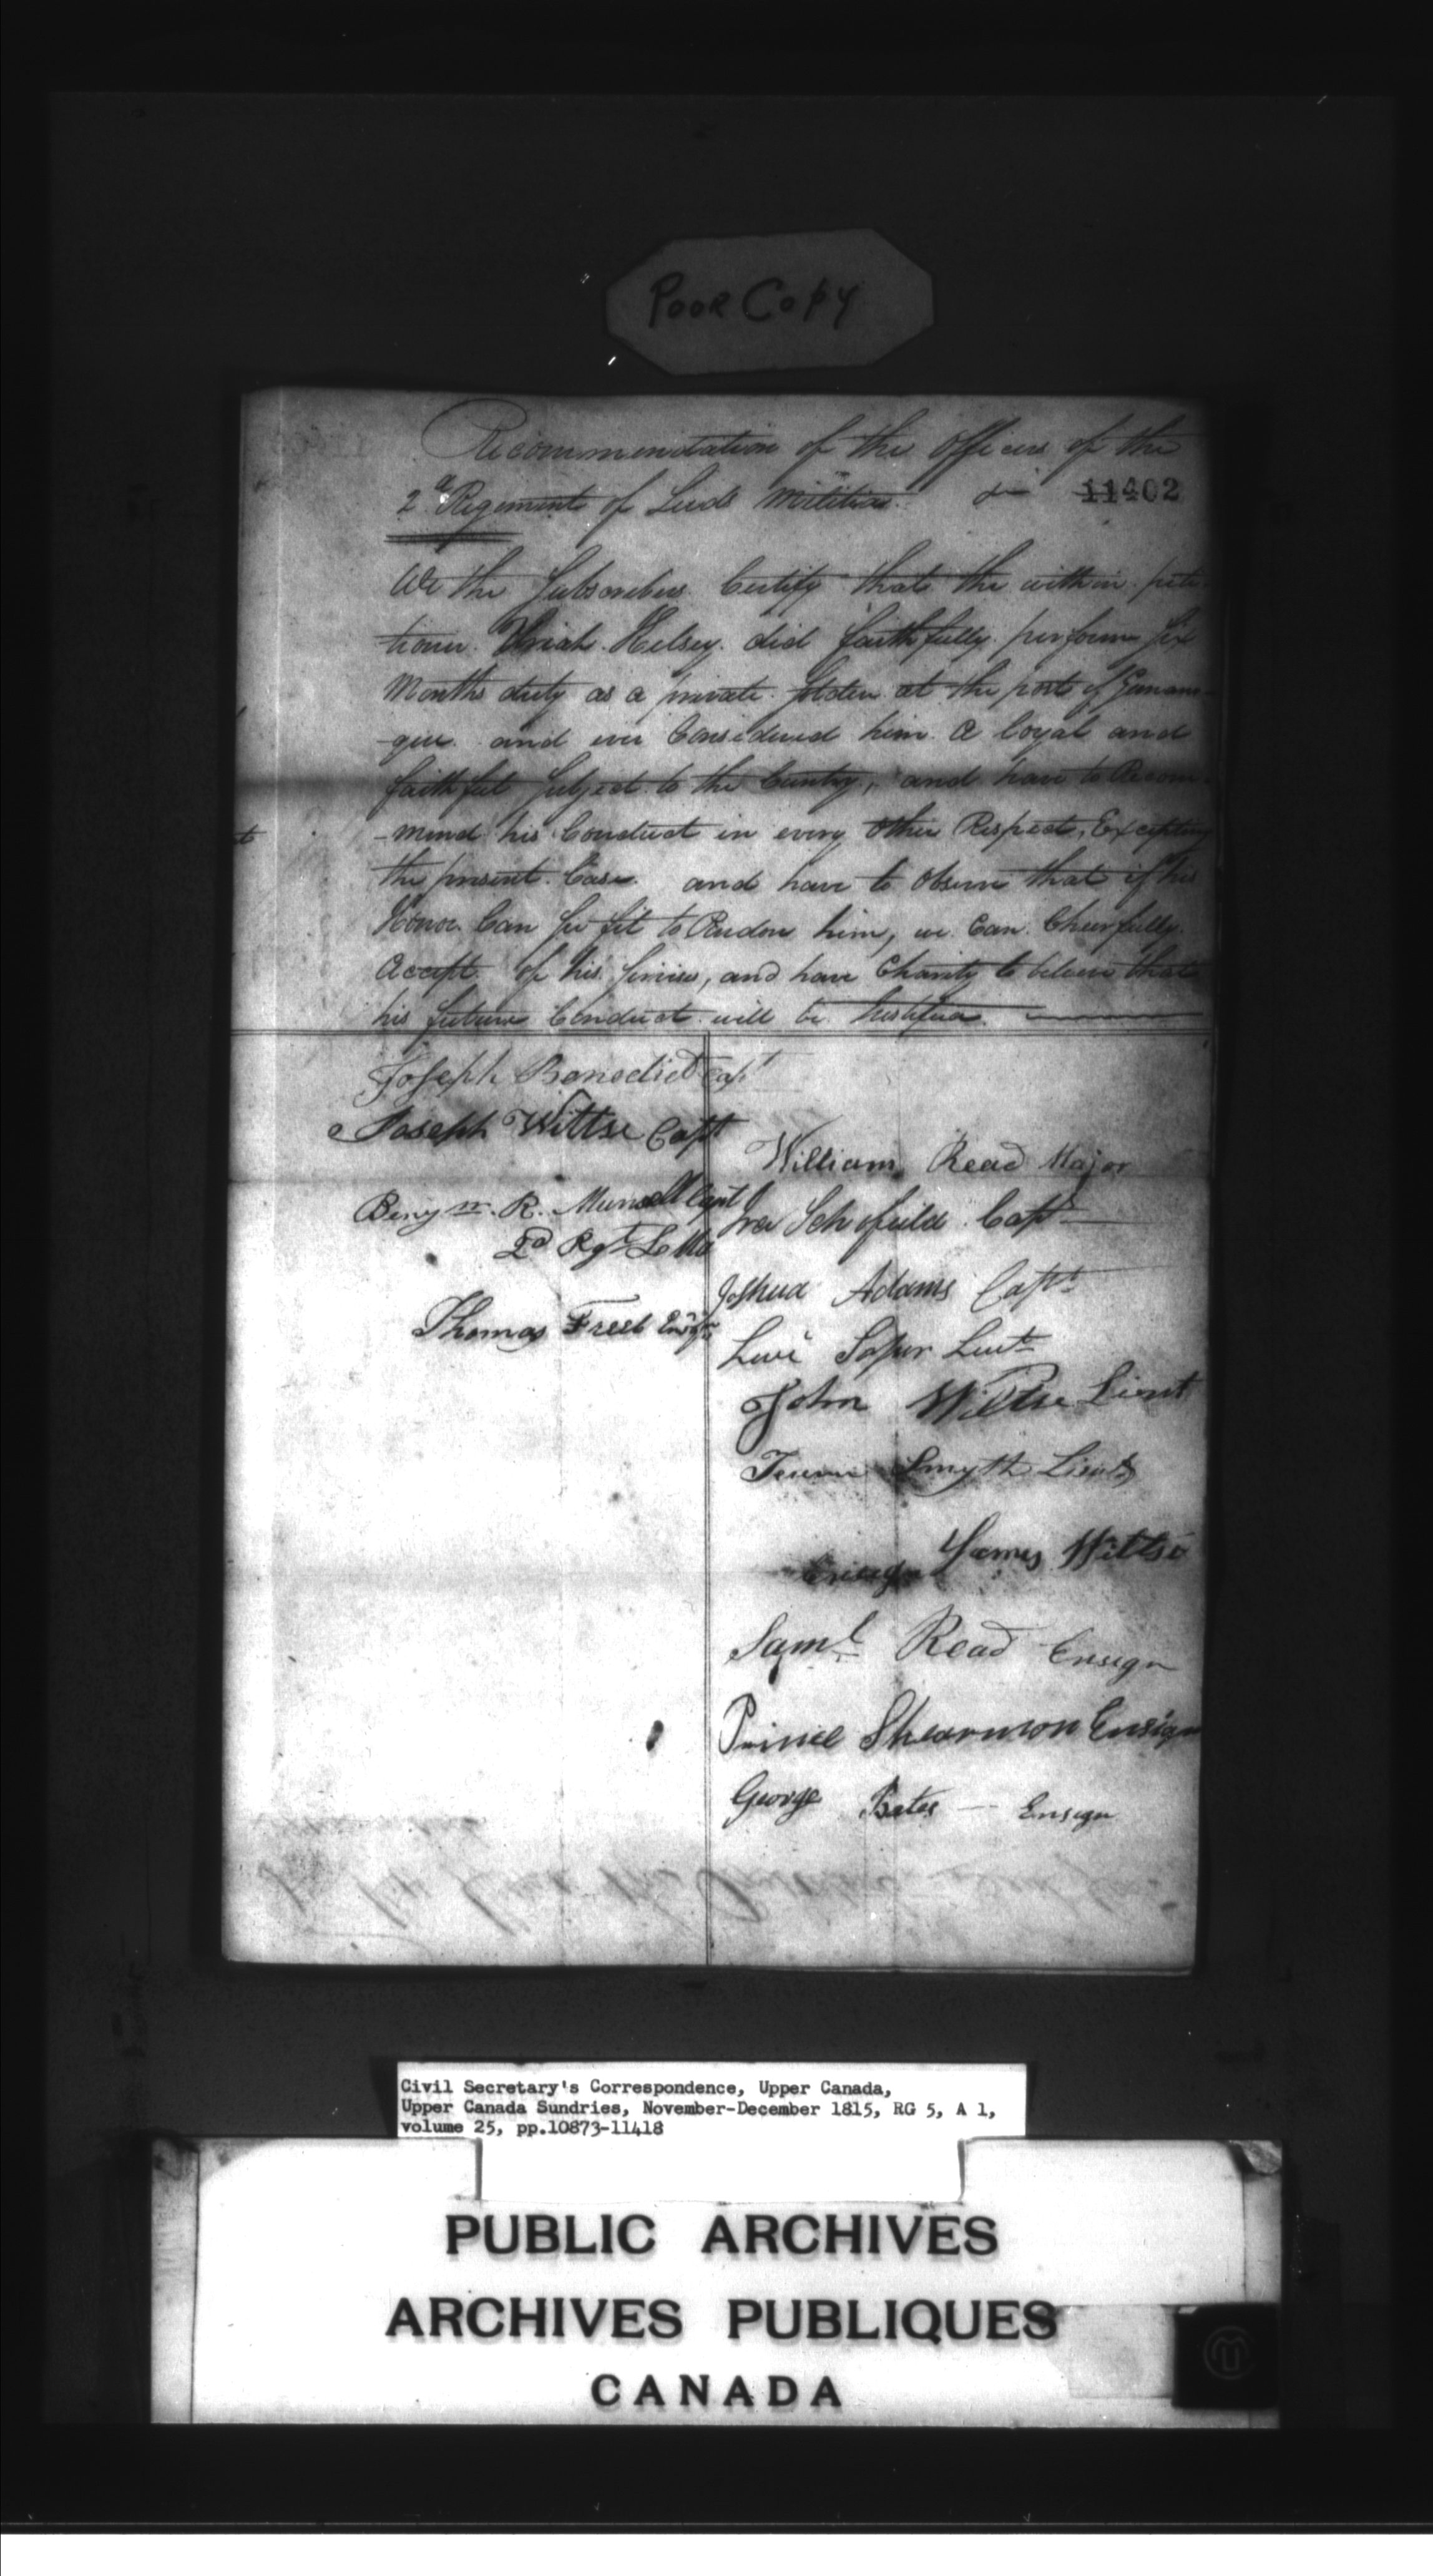 Poor Copy
Recommendation of the officers of the
2d Regiment of Leeds Militia
11402
We the Subscribers Certify that the within peti-
tioner Uriah Kelsey did faithfully perform Six
Months duty as a private Soldier at the post of Ganano-
-que and ever Considered him a loyal and
faithful Subject to the Cuntry, and have to Recom-
-mend his Conduct in every other Respect, Excepting
the present Case and have to observe that if his
Honor Can See fit to Pardon him, we Can Cheerfully
Accept of his Services, and have Charity to believe that
his future Conduct will be
Joseph Benedict Capt
Joseph Wiltse Capt
Benjm. R. Munsell Capt
2d Rgt L Ma
Thomas Freel Ensgn
William Read Major
Ira Schofield Capt
Joshua Adams Capt
Levi Soper Lieut
John Wiltse Lieut
Smyth Lieut
James Wiltse
Ensign
Saml Read Ensign
Prince Shearmon Ensign
George Bates — Ensign
Civil Secretary's Correspondence, Upper Canada,
Upper Canada Sundries, November-December 1815, RG 5, A 1,
volume 25, pp.10873-11418
PUBLIC ARCHIVES
ARCHIVES PUBLIQUES
CANADA